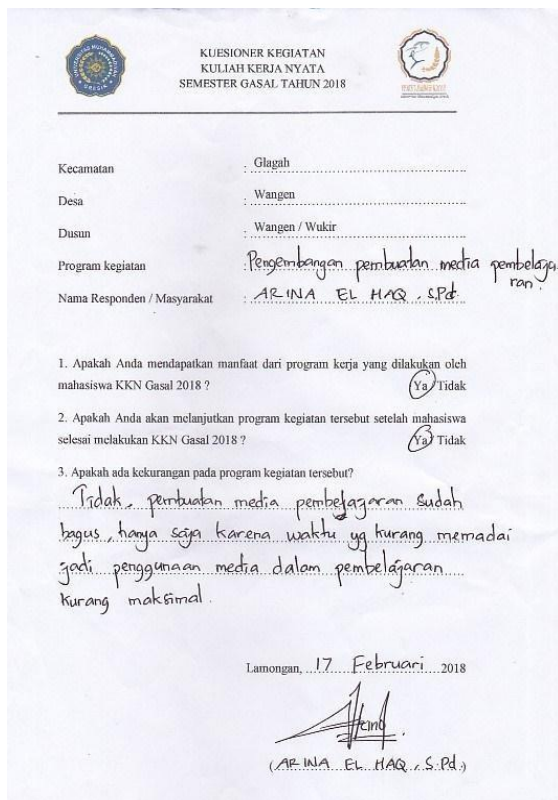 KUESIONER KEGIATAN
KULIAH KERJA NYATA
SEMESTER GASAL TAHUN 2018
Kecamatan : Glagah
Desa : Wangen
Dusun : Wangen / Wukir
Program kegiatan : Pengembangan pembuatan media pembelaja
ran.
Nama Responden / Masyarakat : ARINA EL HAQ, S.Pd.
1. Apakah Anda mendapatkan manfaat dari program kerja yang dilakukan oleh
mahasiswa KKN Gasal 2018 ? Ya/ Tidak
2. Apakah Anda akan melanjutkan program kegiatan tersebut setelah mahasiswa
selesai melakukan KKN Gasal 2018 ? Ya/ Tidak
3. Apakah ada kekurangan pada program kegiatan tersebut?
Tidak, pembuatan media pembelajaran sudah
bagus, hanya saja karena waktu yg kurang memadai
jadi penggunaan media dalam pembelajaran
kurang maksimal.
Lamongan, 17 Februari 2018
(ARINA EL HAQ, S.Pd.)